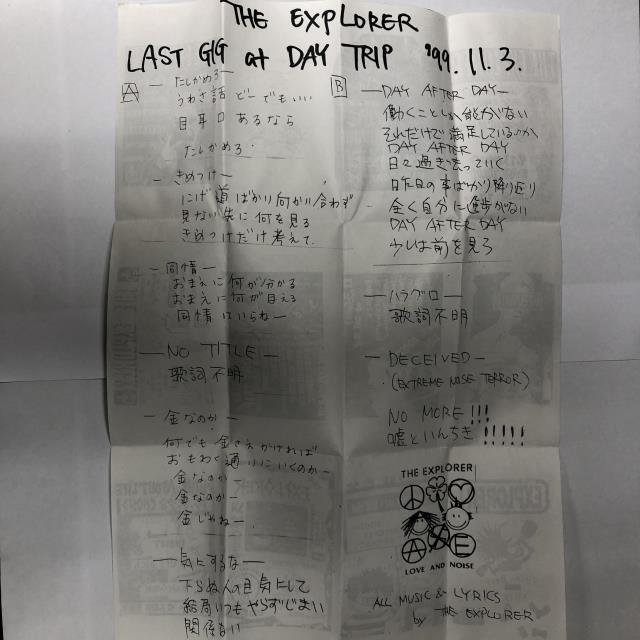 THE EXPLORER
LAST GIG at DAY TRIP '99.11.3.
A
—たしかめろ—
うわさ話 どーでもいい
目耳口 あるなら
たしかめろ.
—きめつけ—
にげ道ばかり向かい合わず
見ない先に何を見る
きめつけだけ考えて.
—同情—
おまえに何が分かる
おまえに何が言える
同情はいらねー
—NO TITLE—
歌詞不明
—金なのか—
何でも金さえかければ
おもわく通りにいくのかー
金なのかー
金なのかー
金じゃねー
—気にするな—
下らぬ人の目気にして
結局いつもやらずじまい
関係ない
B
—DAY AFTER DAY—
働くことしか能がない
それだけで満足しているのか
DAY AFTER DAY
日々過ぎ去っていく
昨日の事ばかり降り返り
全く自分に進歩がない
DAY AFTER DAY
少しは前を見ろ
—ハラグロ—
歌詞不明
—DECEIVED—
(EXTREME NOISE TERROR)
NO MORE!!!
嘘といんちき!!!!!
THE EXPLORER
LOVE AND NOISE
ALL MUSIC & LYRICS
by THE EXPLORER